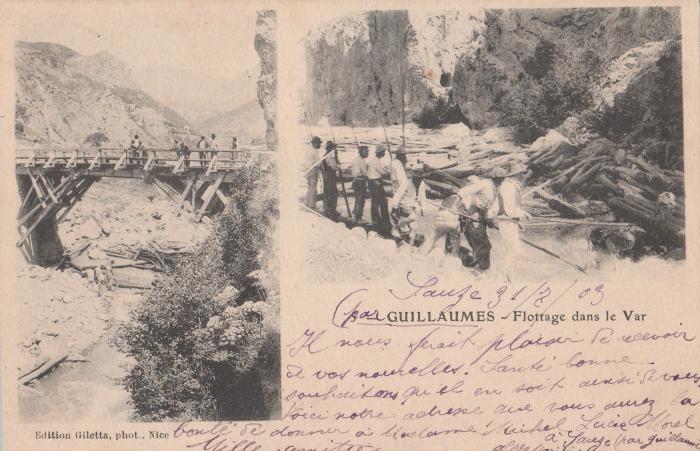 Sauze 31/7/03
(par GUILLAUMES - Flottage dans le Var
Il nous ferait plaisir de recevoir
de vos nouvelles. Santé bonne
souhaitons qu'il en soit ainsi de vous
Voici notre adresse que vous aurez la
bonté de donner à Madame Michel Lucie Morel
à Sauze (par Guillaumes
Mille amitiés
Edition Giletta, phot., Nice